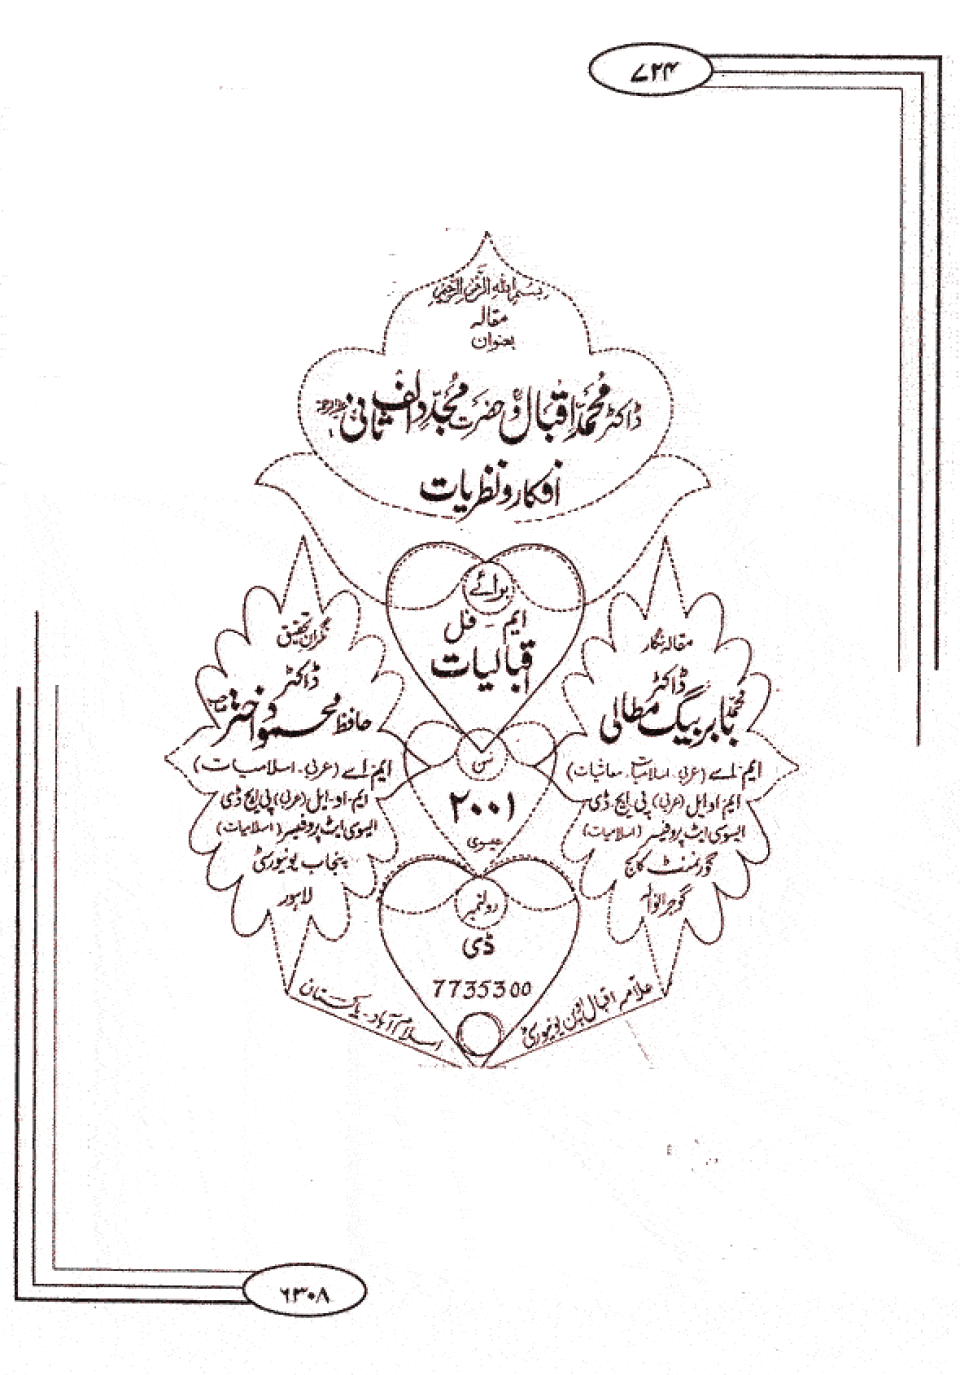 ۷۲۴
بسم الله الرحمن الرحيم
مقالہ
بعنوان
ڈاکٹر محمد اقبال و حضرت مجدد الف ثانی
افکار و نظریات
برائے
ایم - فل
اقبالیات
مقالہ نگار
ڈاکٹر
محمد بابر بیگ مطالی
ایم-اے (عربی، اسلامیات، معاشیات)
ایم او ایل (عربی) پی ایچ ڈی
ایسوسی ایٹ پروفیسر (اسلامیات)
گورنمنٹ کالج
گوجرانوالہ
نگران تحقیق
ڈاکٹر
حافظ محمود اختر صاحب
ایم اے (عربی - اسلامیات)
ایم-او-ایل (عربی) پی ایچ ڈی
ایسوسی ایٹ پروفیسر (اسلامیات)
پنجاب یونیورسٹی
لاہور
سن
۲۰۰۱
عیسوی
رولنمبر
ڈی
7735300
علامہ اقبال اوپن یونیورسٹی
اسلام آباد - پاکستان
۶۳۰۸